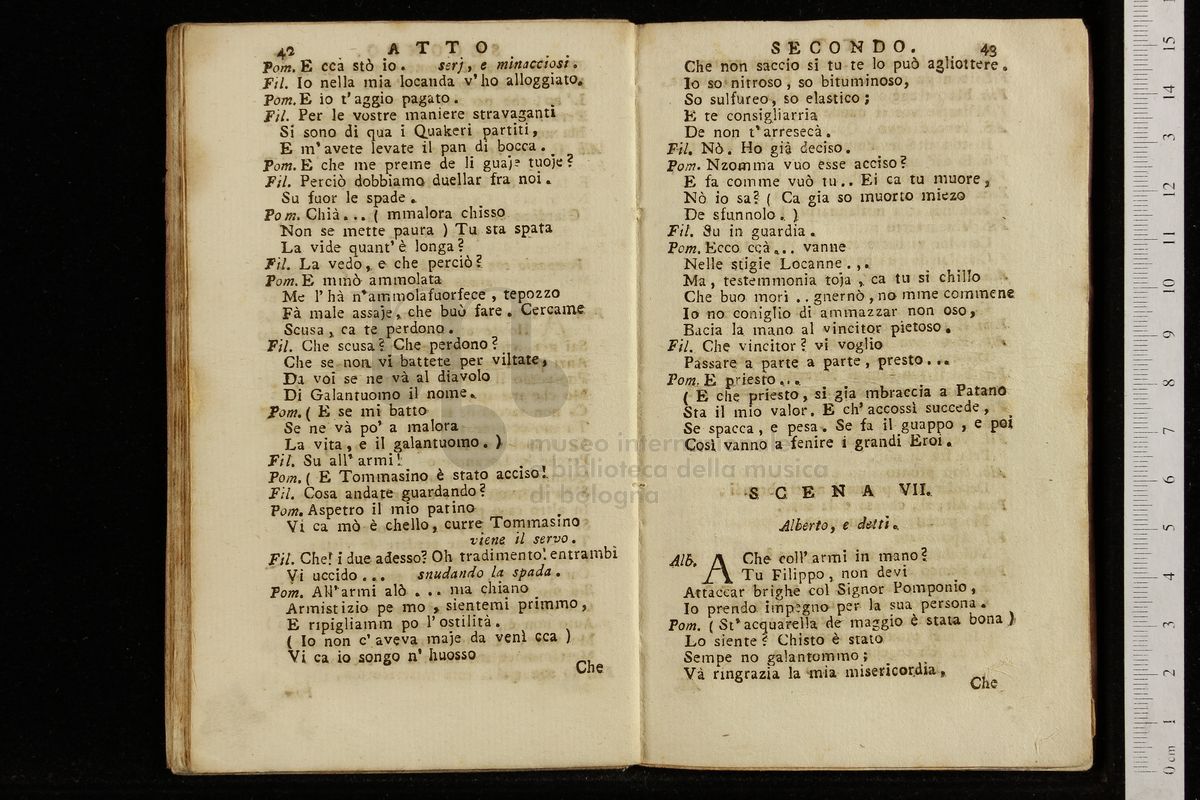 42 ATTO
Pom. E ccà stò io. serj, e minacciosi.
Fil. Io nella mia locanda v'ho alloggiato.
Pom. E io t'aggio pagato.
Fil. Per le vostre maniere stravaganti
Si sono di qua i Quakeri partiti,
E m'avete levate il pan di bocca.
Pom. E che me preme de li guaje tuoje?
Fil. Perciò dobbiamo duellar fra noi.
Su fuor le spade.
Pom. Chià... ( mmalora chisso
Non se mette paura ) Tu sta spata
La vide quant'è longa?
Fil. La vedo, e che perciò?
Pom. E mmò ammolata
Me l'hà n'ammolafuorfece, tepozzo
Fà male assaje, che buò fare. Cercame
Scusa, ca te perdono.
Fil. Che scusa? Che perdono?
Che se non vi battete per viltate,
Da voi se ne và al diavolo
Di Galantuomo il nome.
Pom. ( E se mi batto
Se ne và po' a malora
La vita, e il galantuomo. )
Fil. Su all'armi!
Pom. ( E Tommasino è stato acciso!
Fil. Cosa andate guardando?
Pom. Aspetro il mio patino
Vi ca mò è chello, curre Tommasino
viene il servo.
Fil. Che! i due adesso? Oh tradimento! entrambi
Vi uccido... snudando la spada.
Pom. All'armi alò... ma chiano
Armistizio pe mo, sientemi primmo,
E ripigliamm po l'ostilità.
( Io non c'aveva maje da venì cca )
Vi ca io songo n'huosso
Che
SECONDO. 43
Che non saccio si tu te lo può agliottere.
Io so nitroso, so bituminoso,
So sulfureo, so elastico;
E te consigliarria
De non t'arresecà.
Fil. Nò. Ho già deciso.
Pom. Nzomma vuo esse acciso?
E fa comme vuò tu.. Ei ca tu muore,
Nò io sa? ( Ca gia so muorto miezo
De sfunnolo. )
Fil. Su in guardia.
Pom. Ecco ccà... vanne
Nelle stigie Locanne...
Ma, testemmonia toja, ca tu si chillo
Che buo morì.. gnernò, no mme commene
Io no coniglio di ammazzar non oso,
Bacia la mano al vincitor pietoso.
Fil. Che vincitor? vi voglio
Passare a parte a parte, presto...
Pom. E priesto...
( E che priesto, si gia mbraccia a Patano
Sta il mio valor. E ch'accossì succede,
Se spacca, e pesa. Se fa il guappo, e poi
Così vanno a fenire i grandi Eroi.
SCENA VII.
Alberto, e detti.
Alb. A Che coll'armi in mano?
Tu Filippo, non devi
Attaccar brighe col Signor Pomponio,
Io prendo impegno per la sua persona.
Pom. ( St'acquarella de maggio è stata bona )
Lo siente? Chisto è stato
Sempe no galantommo;
Và ringrazia la mia misericordia,
Che
museo internazionale
e biblioteca della musica
di bologna
0 cm 1 2 3 4 5 6 7 8 9 10 11 12 13 14 15